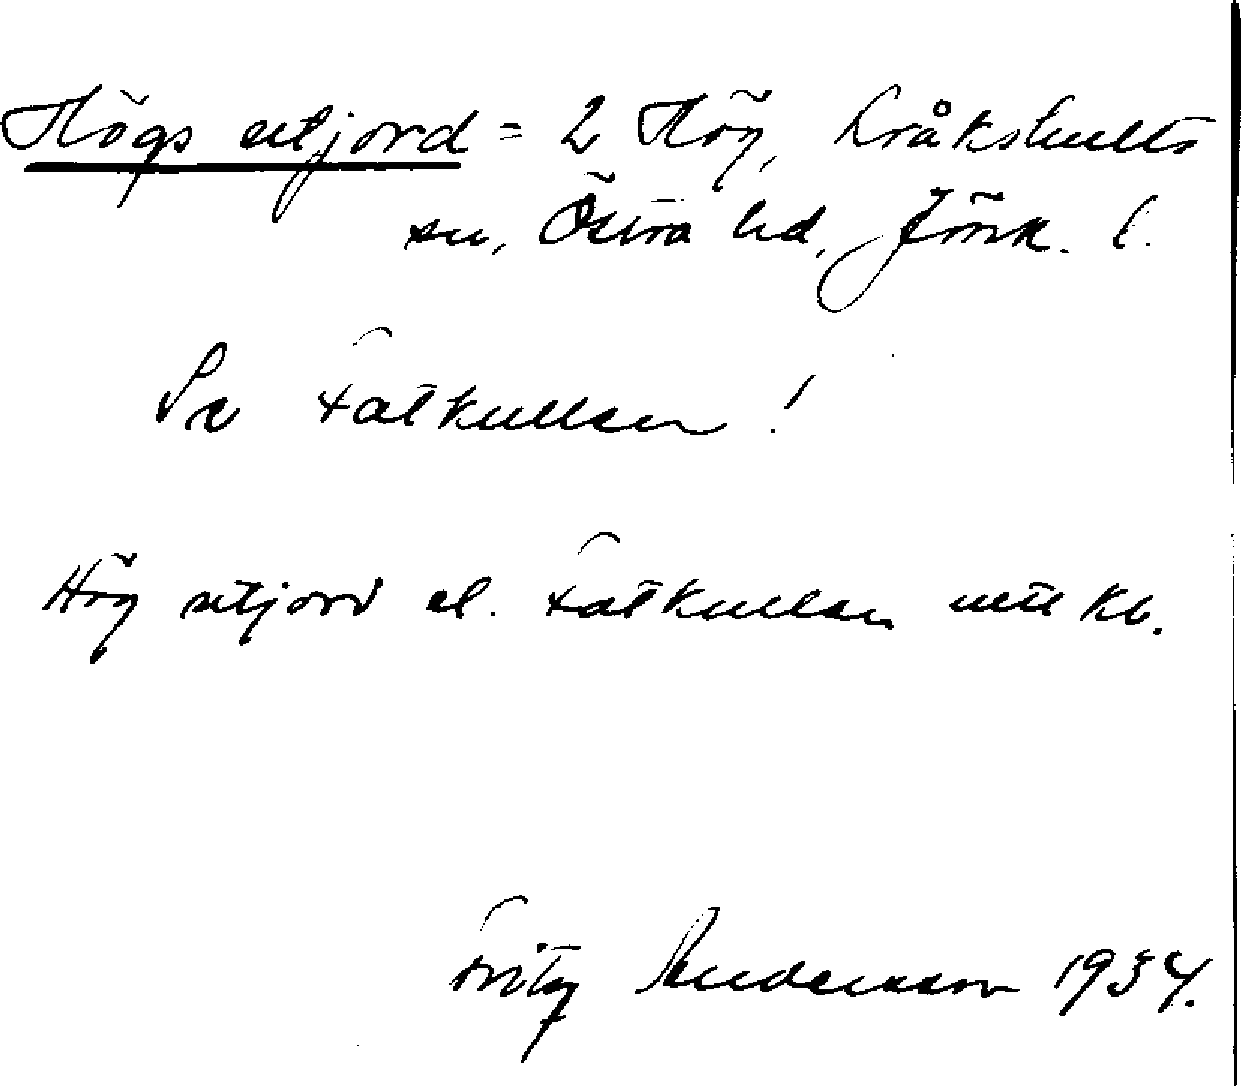 Högs utjord = 2 Hög, Kråkshults
sn, Östra hd, Jönk. l.
Se Fatkullen!
Hög utjord el. Fatkullen utt kb.
Fritz Andersson 1934.